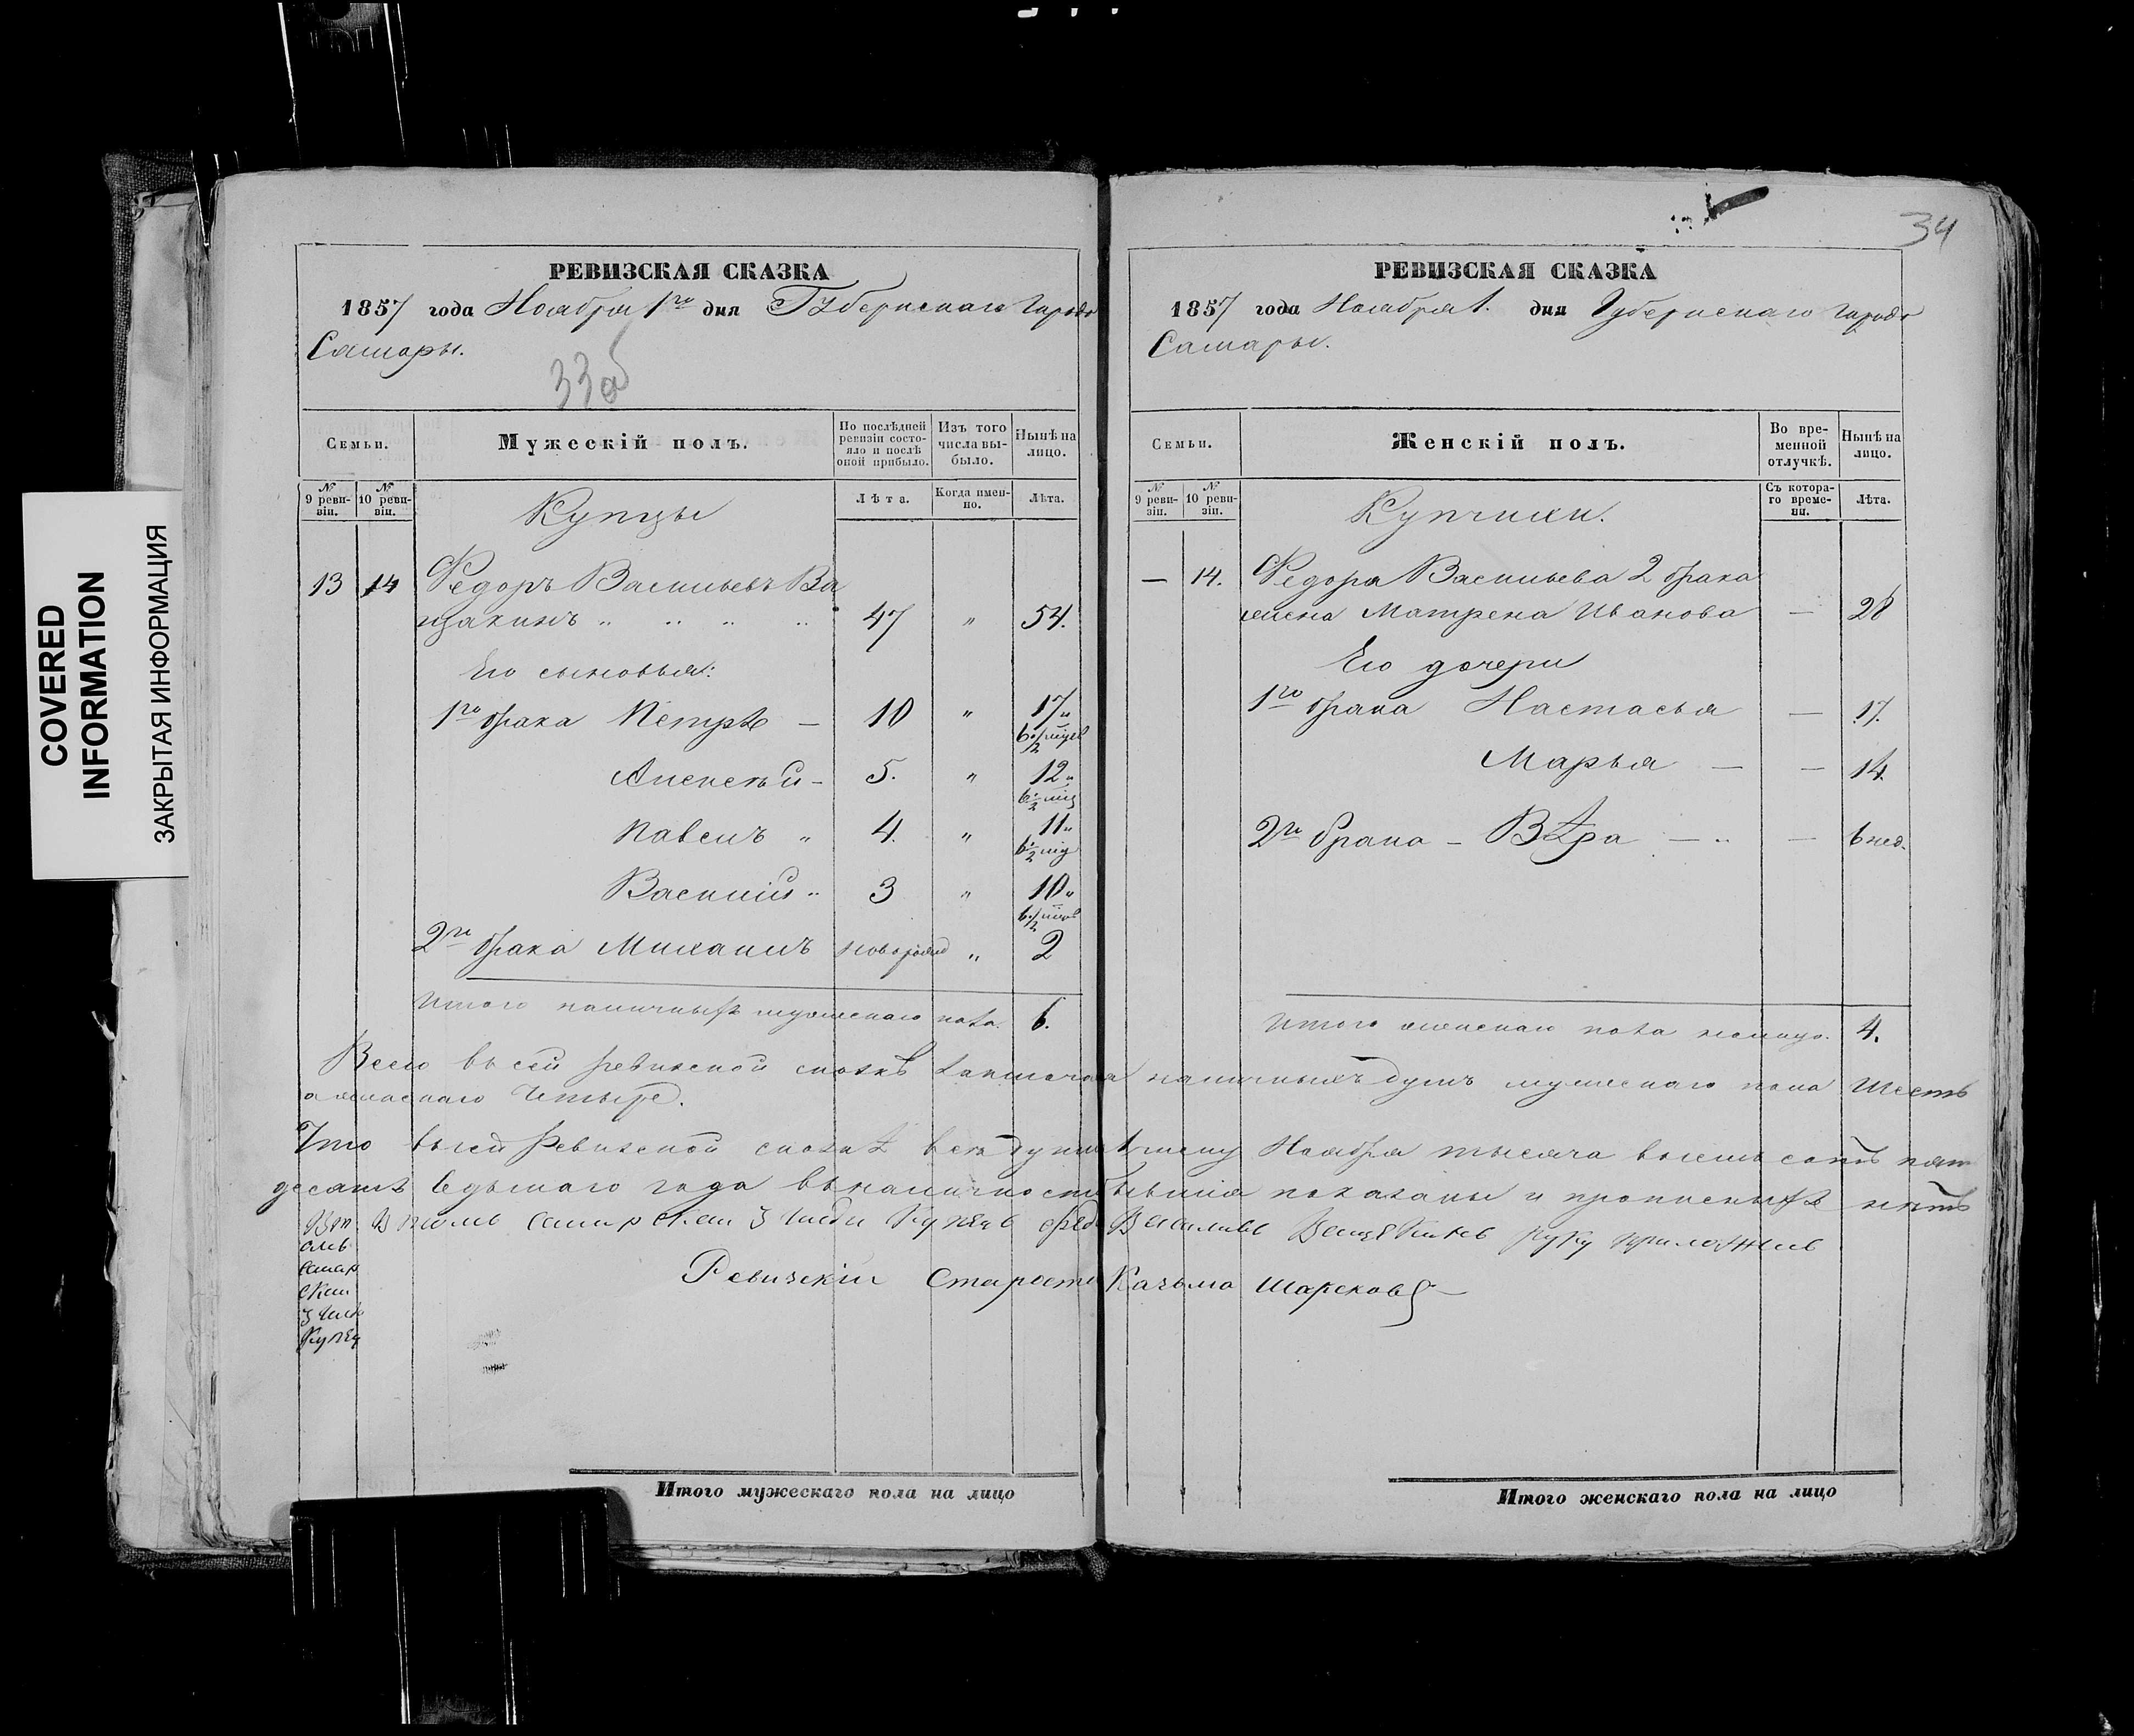 COVERED
INFORMATION
ЗАКРЫТАЯ ИНФОРМАЦИЯ
РЕВИЗСКАЯ СКАЗКА
1857 года Ноября 1го дня Губернскаго Города
Самары.
33об
Семьи.
Мужескій полъ.
По послѣдней ревизіи состояло и послѣ оной прибыло.
Изъ того числа выбыло.
Нынѣ на лицо.
№ 9 ревизіи.
№ 10 ревизіи.
Лѣта.
Когда именно.
Лѣта.
Купцы
13 14 Федоръ Васильевъ Ва
щакинъ 47 " 54.
Его сыновья:
1го брака Петръ — 10 " 17
6 1/2 мѣсяц
Алексѣй — 5. " 12
6 1/2 мѣс
Павелъ " 4. " 11
6 1/2 мѣс
Василій 3 " 10
6 1/2 мѣс
2го брака Михаилъ новорожд " 2
Итого наличныхъ мужескаго пола. 6.
34
РЕВИЗСКАЯ СКАЗКА
1857 года Ноября 1. дня Губернскаго Города
Самары.
Семьи.
Женскій полъ.
Во временной отлучкѣ.
Нынѣ на лицо.
№ 9 ревизіи.
№ 10 ревизіи.
Съ котораго времени.
Лѣта.
Купчихи.
— 14. Федора Васильева 2 брака
жена Матрена Иванова — 28
Его дочери
1го брака Настасья — 17.
Марья — — 14.
2го брака — Вѣра — — 6 нед.
Итого женскаго пола налицо. 4.
Всего въ сей ревизской сказкѣ заключается наличныхъ душъ мужескаго пола Шесть
а женскаго Четыре.
Что въ сей Ревизской сказкѣ всѣ души к 1 числу Ноября тысяча восемь сотъ пять
десятъ седьмаго года въ наличности бывшія показаны и прописныхъ нѣтъ
самарскай 3 гилди Купецъ Фед Василивъ руку приложилъ
самар
скай
3 гил
Купец
Ревизскій Староста Казьма Шарсков
Итого мужескаго пола на лицо
Итого женскаго пола на лицо